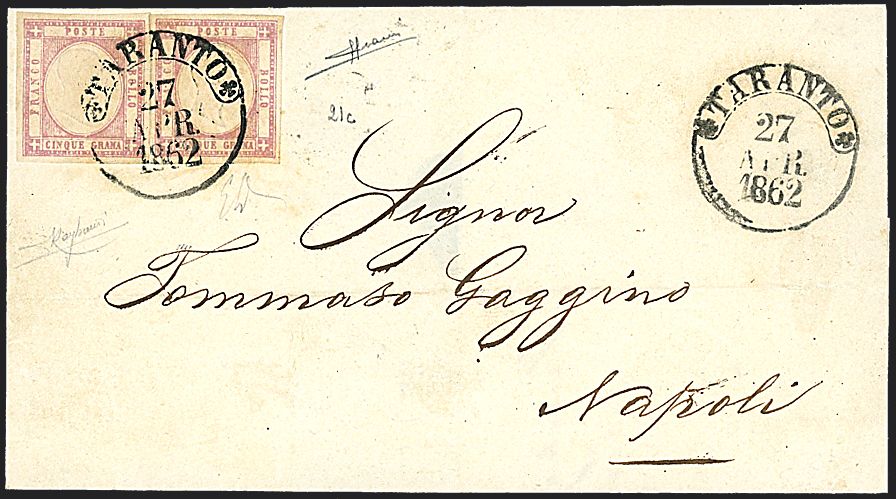 POSTE POSTE
FRANCO BOLLO BOLLO
CINQUE GRANA CINQUE GRANA
TARANTO
27
APR.
1862
21c
TARANTO
27
APR.
1862
Signor
Tommaso Gaggino
Napoli